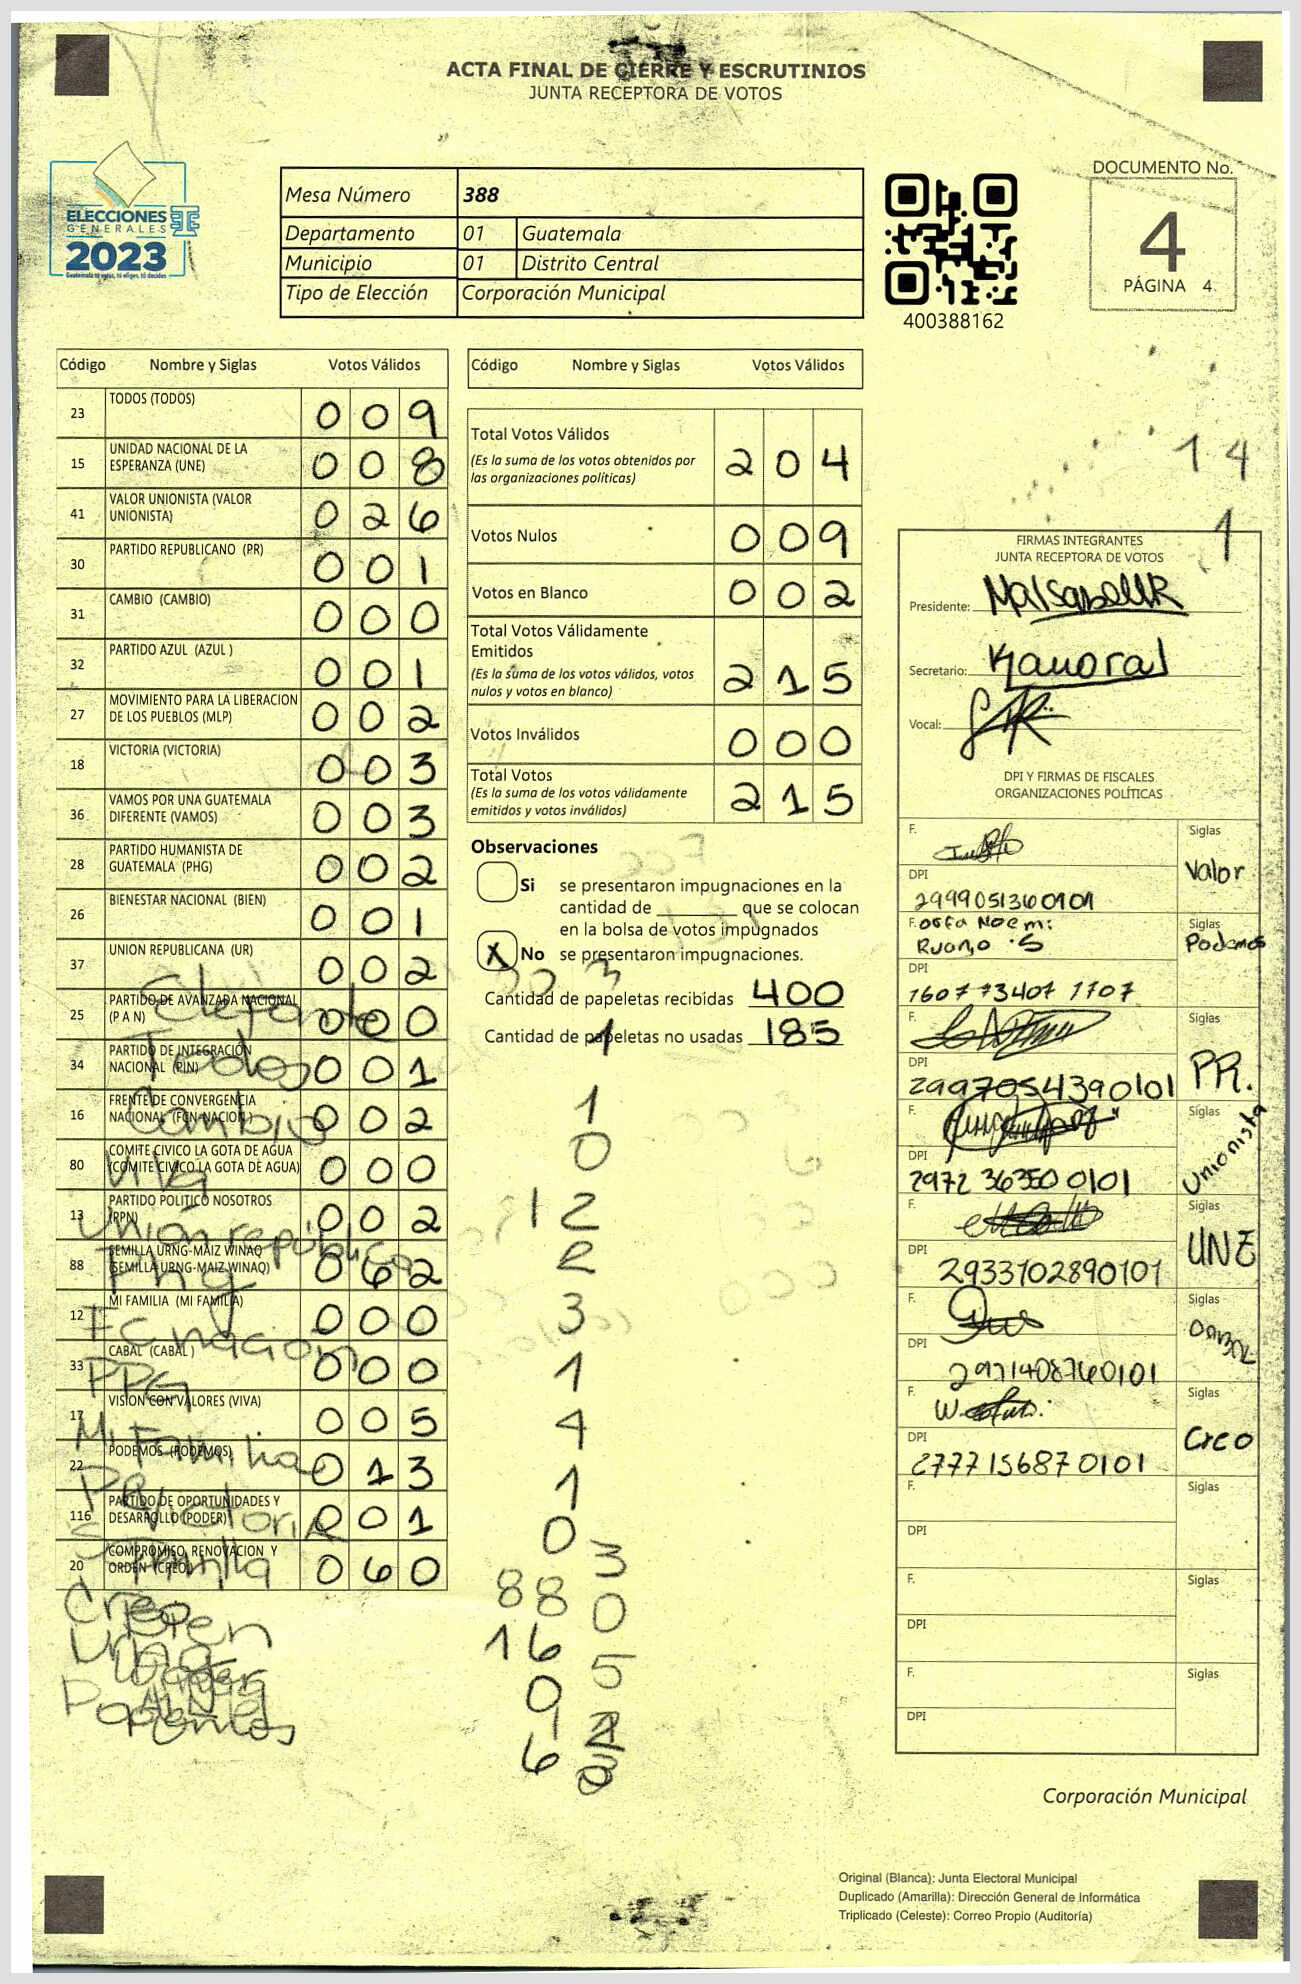 ACTA FINAL DE CIERRE Y ESCRUTINIOS
JUNTA RECEPTORA DE VOTOS
ELECCIONES
GENERALES
2023
Guatemala tú votas, tú eliges, tú decides
Mesa Número 388
Departamento 01 Guatemala
Municipio 01 Distrito Central
Tipo de Elección Corporación Municipal
400388162
DOCUMENTO No.
4
PÁGINA 4
Código Nombre y Siglas Votos Válidos
23 TODOS (TODOS) 0 0 9
15 UNIDAD NACIONAL DE LA ESPERANZA (UNE) 0 0 8
41 VALOR UNIONISTA (VALOR UNIONISTA) 0 2 6
30 PARTIDO REPUBLICANO (PR) 0 0 1
31 CAMBIO (CAMBIO) 0 0 0
32 PARTIDO AZUL (AZUL ) 0 0 1
27 MOVIMIENTO PARA LA LIBERACION DE LOS PUEBLOS (MLP) 0 0 2
18 VICTORIA (VICTORIA) 0 0 3
36 VAMOS POR UNA GUATEMALA DIFERENTE (VAMOS) 0 0 3
28 PARTIDO HUMANISTA DE GUATEMALA (PHG) 0 0 2
26 BIENESTAR NACIONAL (BIEN) 0 0 1
37 UNION REPUBLICANA (UR) 0 0 2
25 PARTIDO DE AVANZADA NACIONAL (P A N) 0 0 0
34 PARTIDO DE INTEGRACIÓN NACIONAL (PIN) 0 0 1
16 FRENTE DE CONVERGENCIA NACIONAL (FCN-NACION) 0 0 2
80 COMITE CIVICO LA GOTA DE AGUA (COMITE CIVICO LA GOTA DE AGUA) 0 0 0
13 PARTIDO POLITICO NOSOTROS (PPN) 0 0 2
88 SEMILLA URNG-MAIZ WINAQ (SEMILLA URNG-MAIZ WINAQ) 0 6 2
12 MI FAMILIA (MI FAMILIA) 0 0 0
33 CABAL (CABAL ) 0 0 0
17 VISION CON VALORES (VIVA) 0 0 5
22 PODEMOS (PODEMOS) 0 1 3
116 PARTIDO DE OPORTUNIDADES Y DESARROLLO (PODER) 0 0 1
20 COMPROMISO, RENOVACION Y ORDEN (CREO) 0 6 0
Elefante
Todos
Cambio
Viva
Unión repúblico
Phg
FC nación
PPG
Mi Familia
PR
Victoria
Semilla
Creo
Bien
Podemos
Código Nombre y Siglas Votos Válidos
Total Votos Válidos 2 0 4
(Es la suma de los votos obtenidos por
las organizaciones políticas)
Votos Nulos 0 0 9
Votos en Blanco 0 0 2
Total Votos Válidamente
Emitidos 2 1 5
(Es la suma de los votos válidos, votos
nulos y votos en blanco)
Votos Inválidos 0 0 0
Total Votos 2 1 5
(Es la suma de los votos válidamente
emitidos y votos inválidos)
Observaciones
Si se presentaron impugnaciones en la
cantidad de ________ que se colocan
en la bolsa de votos impugnados
X No se presentaron impugnaciones.
Cantidad de papeletas recibidas 400
Cantidad de papeletas no usadas 185
3
1
1
0
12
2
3
1
4
1
0
3
88
0
16
5
9
6
14
1
FIRMAS INTEGRANTES
JUNTA RECEPTORA DE VOTOS
Presidente:
Secretario:
Vocal:
DPI Y FIRMAS DE FISCALES
ORGANIZACIONES POLÍTICAS
F. Siglas
Valor
DPI
2999051360101
F. Orfa Noemi Siglas
Ruano S Podemos
DPI
1607 73407 1707
F. Siglas
PR.
DPI
2997054390101
F. Siglas
Unionista
DPI
2972 36350 0101
F. Siglas
UNE
DPI
2933102890101
F. Siglas
CABAL
DPI
2971408760101
F. Siglas
Creo
DPI
2777156870101
F. Siglas
DPI
F. Siglas
DPI
F. Siglas
DPI
Corporación Municipal
Original (Blanca): Junta Electoral Municipal
Duplicado (Amarilla): Dirección General de Informática
Triplicado (Celeste): Correo Propio (Auditoría)